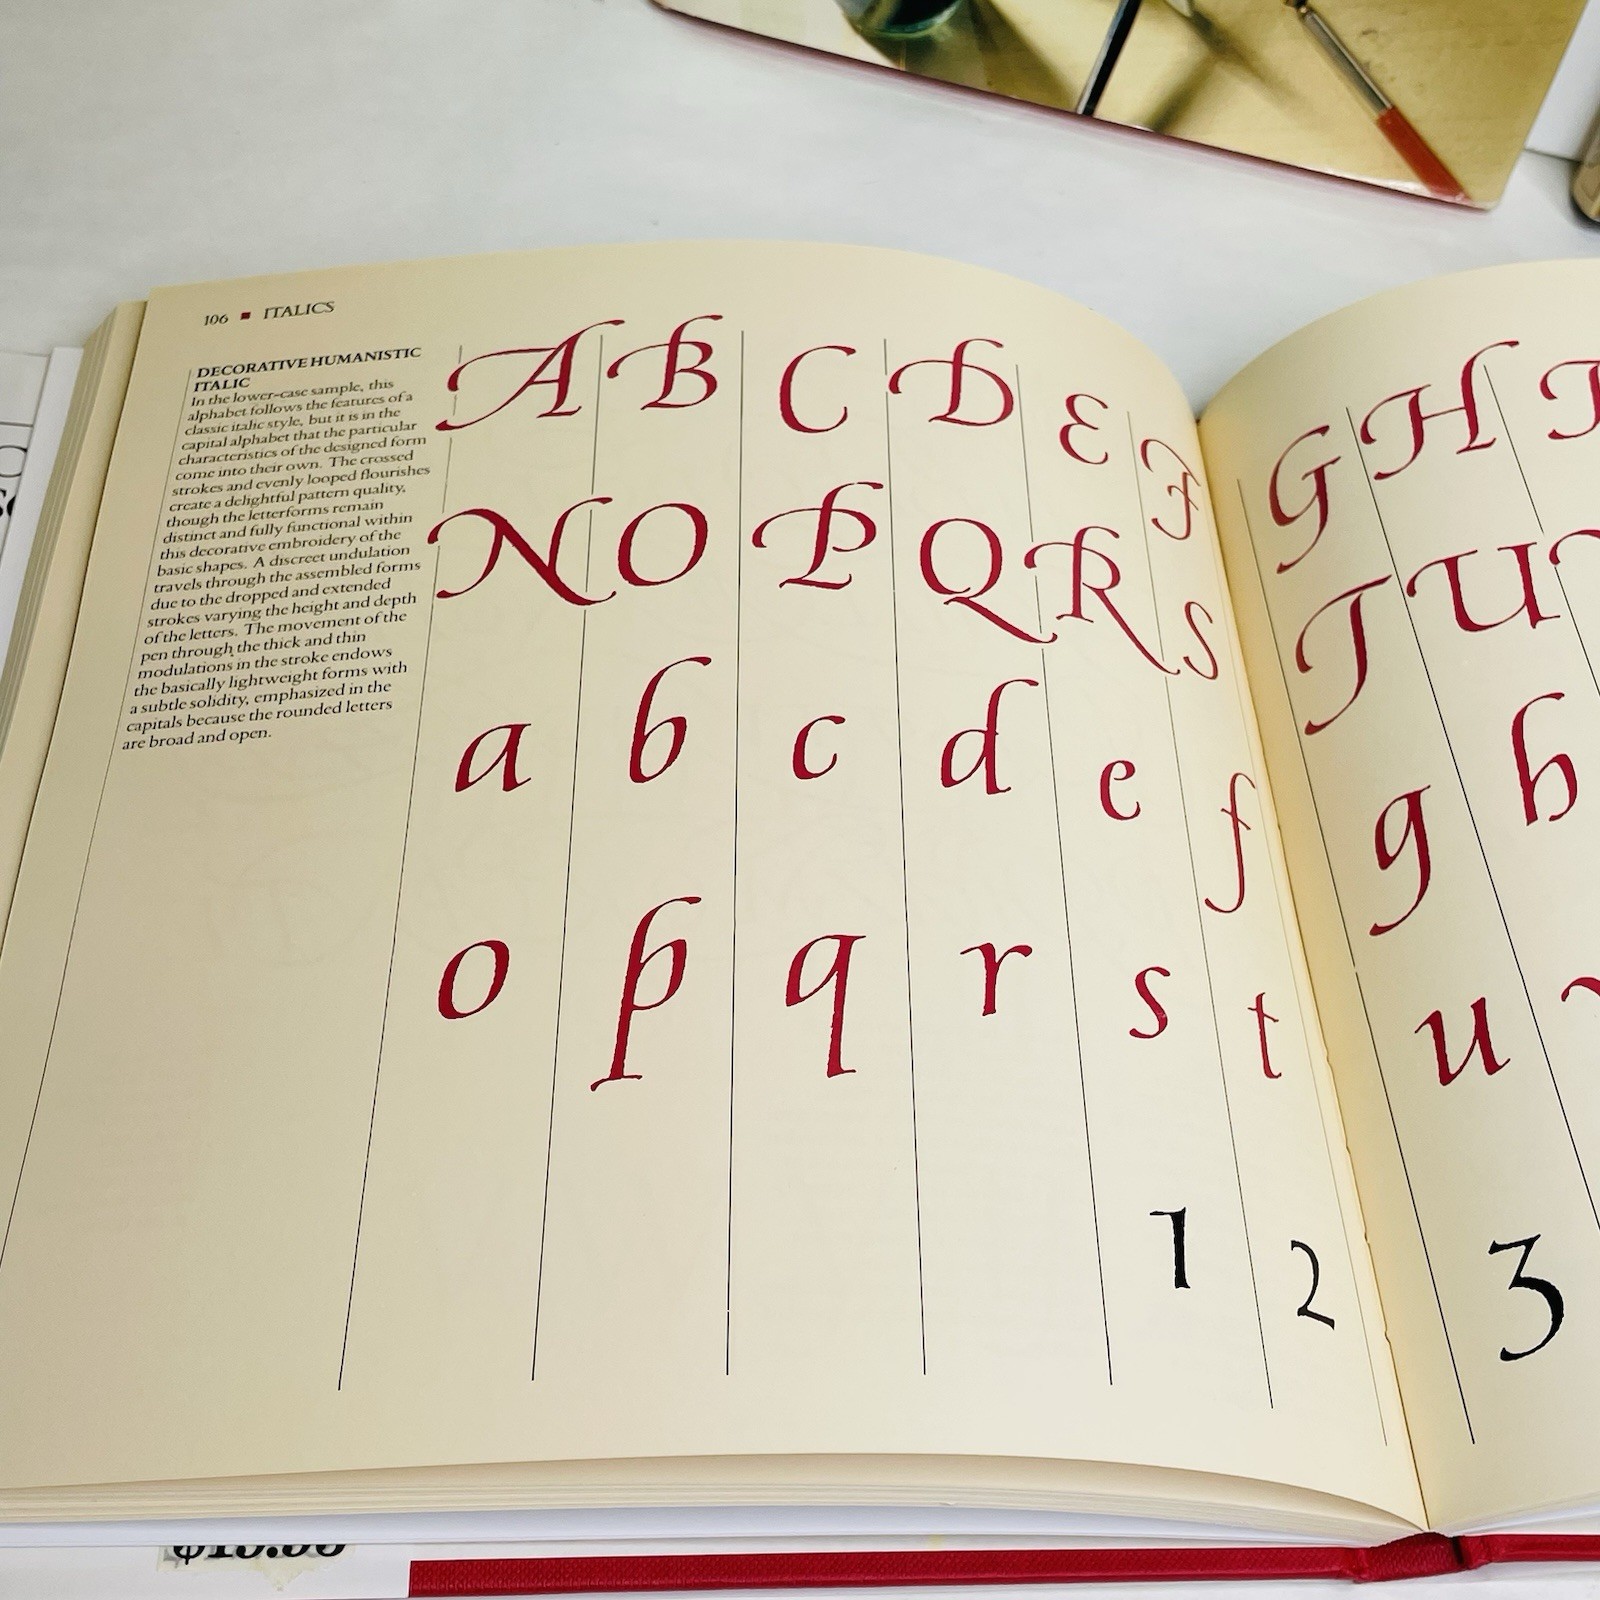 106 ▪ ITALICS
DECORATIVE HUMANISTIC
ITALIC
In the lower-case sample, this
alphabet follows the features of a
classic italic style, but it is in the
capital alphabet that the particular
characteristics of the designed form
come into their own. The crossed
strokes and evenly looped flourishes
create a delightful pattern quality,
though the letterforms remain
distinct and fully functional within
this decorative embroidery of the
basic shapes. A discreet undulation
travels through the assembled forms
due to the dropped and extended
strokes varying the height and depth
of the letters. The movement of the
pen through the thick and thin
modulations in the stroke endows
the basically lightweight forms with
a subtle solidity, emphasized in the
capitals because the rounded letters
are broad and open.
A B C D E F
N O P Q R S
a b c d e f
o p q r s t
1 2
G H
T U
g h
u
3